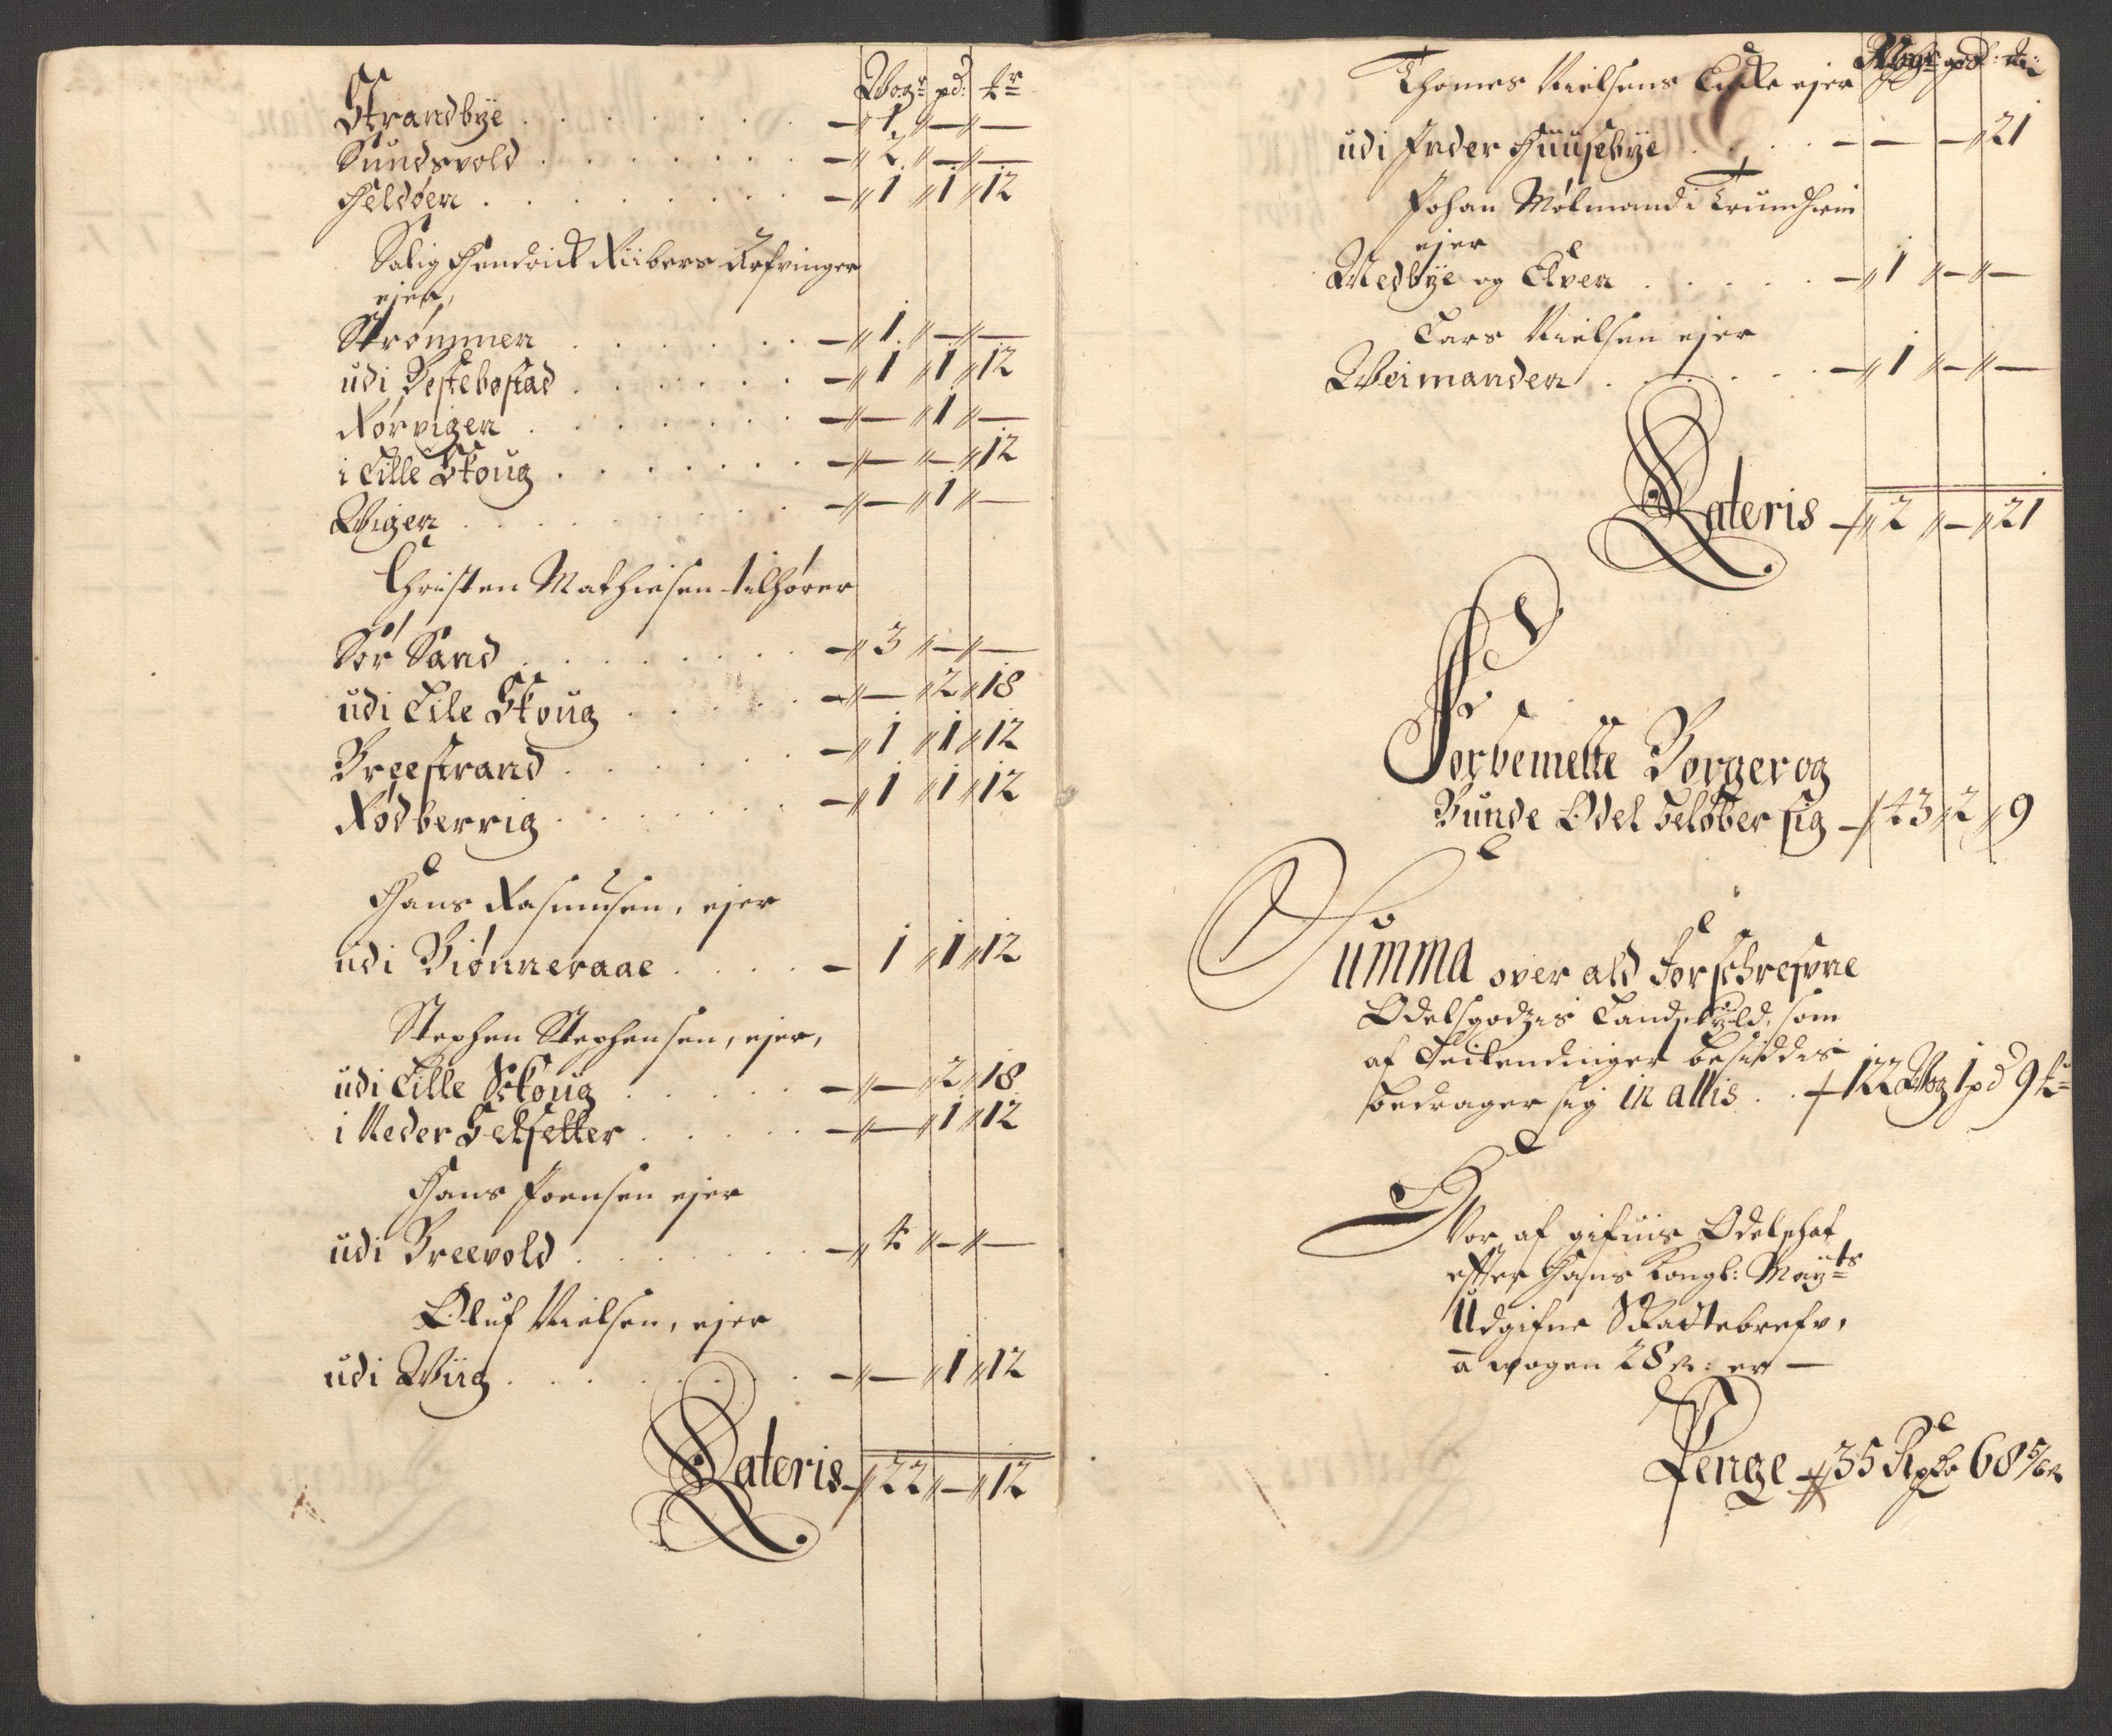 Wogr pd: tr
Strandbye . . . . . . . — 1 — —
Sundsvold . . . . . . . — 2 — —
Heldøen . . . . . . . . — 1 1 12
Salig Hendrick Riibers Arfvinger
ejer,
Strømmen . . . . . . — 1 — —
udi Bestebostad . . . . . . — 1 1 12
Rørvigen . . . . . . . — — 1 —
i Lille Skoug . . . . . . . — — — 12
Wigen . . . . . . . . . — — 1 —
Christen Mathiesen tilhører
Sør Sand . . . . . . . . — 3 — —
udi Lile Skoug . . . . . — — 2 18
Breestrand . . . . . . — 1 1 12
Rødberrig . . . . . . . — 1 1 12
Hans Rasmusen, ejer
udi Biønneraae . . . . — 1 1 12
Stephen Stephensen, ejer,
udi Lille Skoug . . . . . — — 2 18
i Neder Selsetter . . . . . — — 1 12
Hans Joensen ejer
udi Breevold . . . . . . — 4 — —
Oluf Nielsen, ejer
udi Wiig . . . . . . . . — — 1 12
Lateris — 22 — 12
Wogr pd: tr:
Thomes Nielsens Encke ejer
udi Inder Huusebye . . . . — — — 21
Johan Mølmand i Trundhiem
ejer
Medbye og Elven . . . . . — 1 — —
Lars Nielsen ejer
Weimanden . . . . . . — 1 — —
Lateris — 2 — 21
Forbemelte Borger og
Bunde Odel beløber sig — 43 2 9
Summa over ald forschrefvne
Odelsgodzis Landschyld, som
af Leilendinger besiddis
bedrager sig in allis . . 122 Wog 1 pd 9 tr
Hvor af gifuis Odelschat
efter Hans Kongl: Mayts
Udgifne Skattebrefv,
a wogen 28 s: er —
Penge 35 Rdr 68 5/6 s